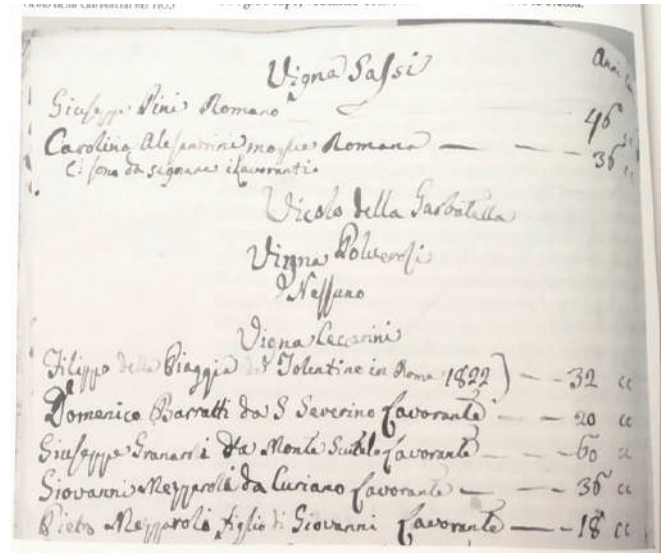 Vigna Sassi
Anni
Giuseppe Pini Romano — 46
Carolina Alesandrini moglie Romana — — 36 cc
Ci sono da segnare i lavoranti
Vicolo della Garbatella
Vigna Polverosi
Nessuno
Vigna Ceccarini
Filippo della Piaggia da Tolentino in Roma 1822) — — 32 cc
Domenico Barratti da S Severino Lavorante — — 20 cc
Giuseppe da Monte Lavorante — — 60 cc
Giovanni Mezzaroli da Curiano Lavorante — — 36 cc
Pietro Mezzaroli figlio di Giovanni Lavorante — — 18 cc